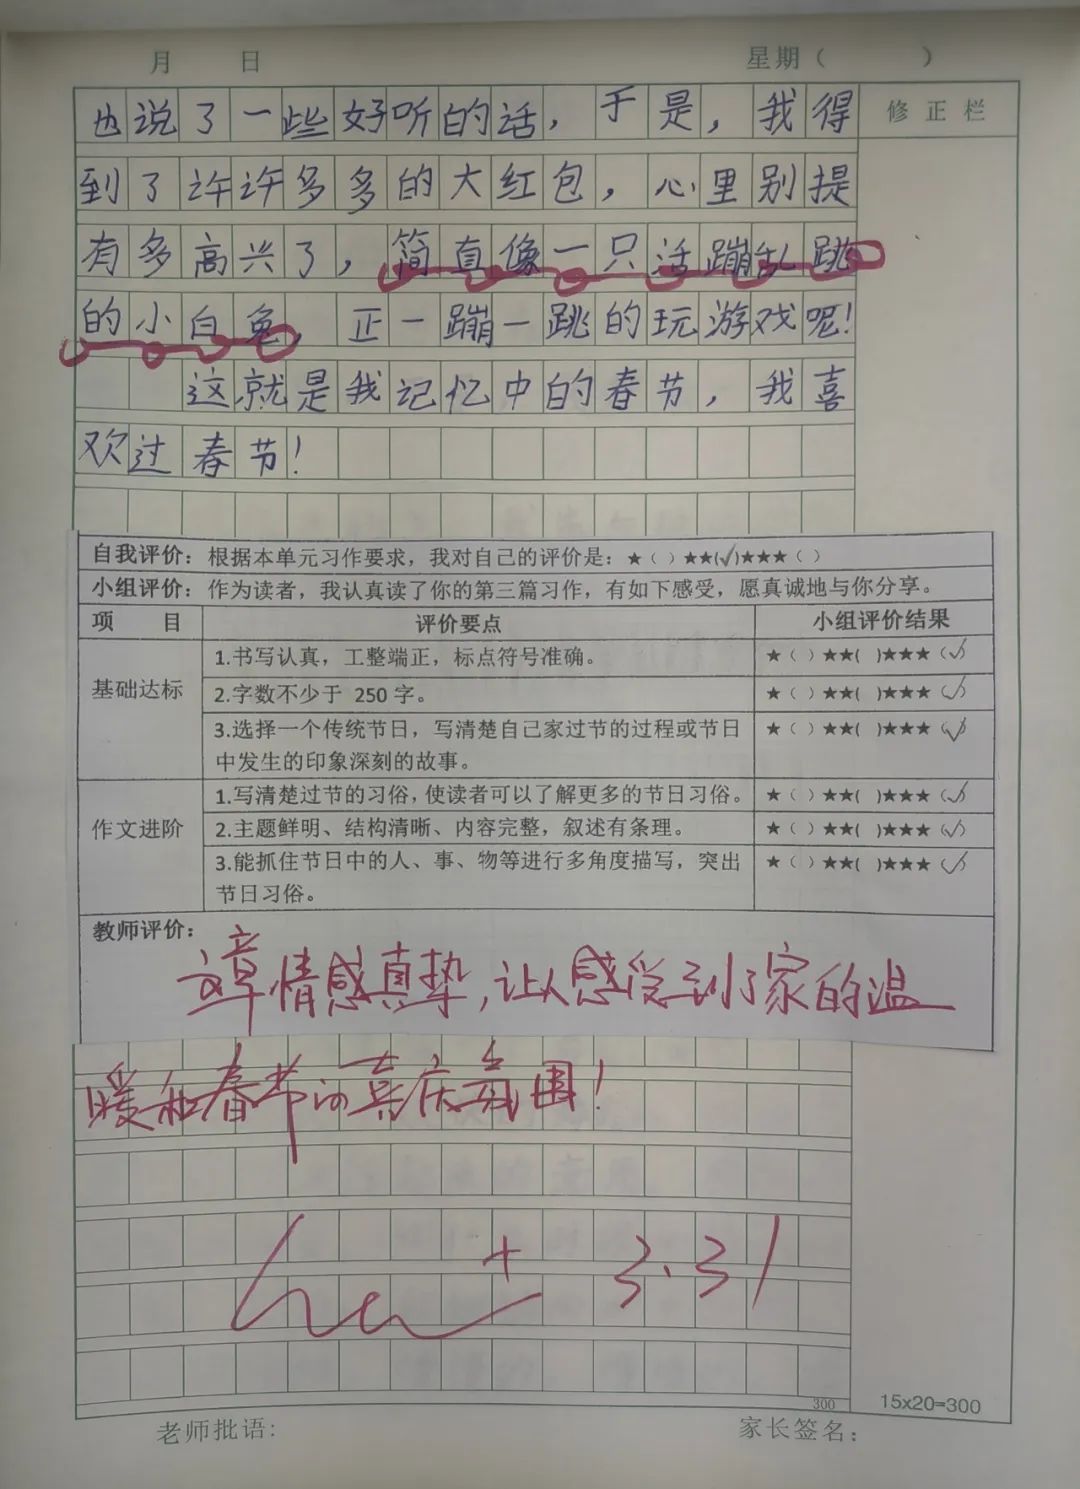 月 日 星期（ ）
也说了一些好听的话，于是，我得
修正栏
到了许许多多的大红包，心里别提
有多高兴了，简直像一只活蹦乱跳
的小白兔，正一蹦一跳的玩游戏呢！
这就是我记忆中的春节，我喜
欢过春节！
自我评价：根据本单元习作要求，我对自己的评价是：★（ ）★★(✓)★★★（ ）
小组评价：作为读者，我认真读了你的第三篇习作，有如下感受，愿真诚地与你分享。
项 目 评价要点 小组评价结果
基础达标
1.书写认真，工整端正，标点符号准确。 ★（ ）★★( )★★★（✓）
2.字数不少于 250 字。 ★（ ）★★( )★★★（✓）
3.选择一个传统节日，写清楚自己家过节的过程或节日 ★（ ）★★( )★★★（✓）
中发生的印象深刻的故事。
作文进阶
1.写清楚过节的习俗，使读者可以了解更多的节日习俗。 ★（ ）★★( )★★★（✓）
2.主题鲜明、结构清晰、内容完整，叙述有条理。 ★（ ）★★( )★★★（✓）
3.能抓住节日中的人、事、物等进行多角度描写，突出 ★（ ）★★( )★★★（✓）
节日习俗。
教师评价：
文章情感真挚，让人感受到了家的温
暖和春节的喜庆氛围！
3.31
300
15x20=300
老师批语： 家长签名：